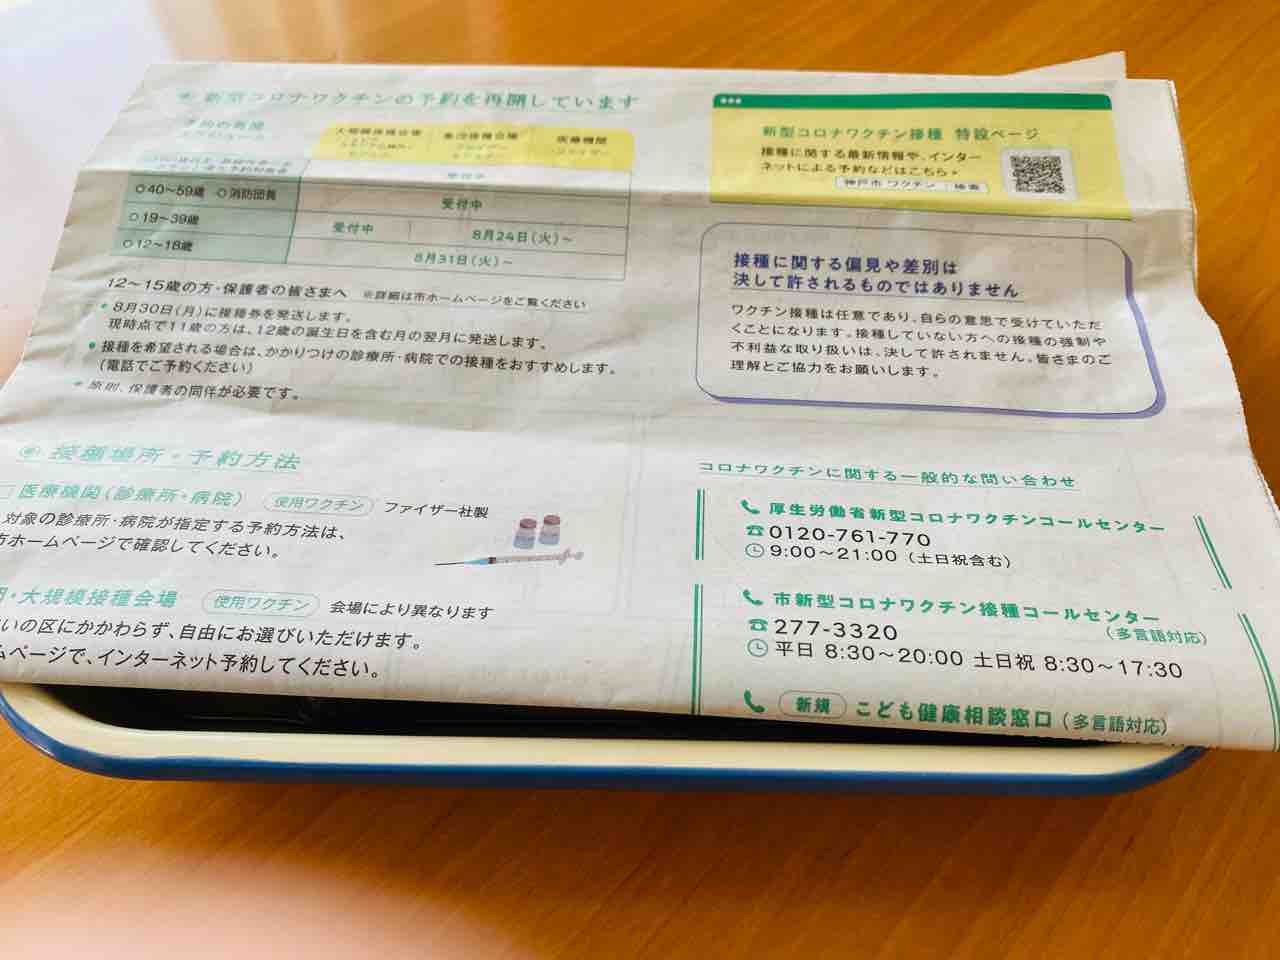 新型コロナワクチンの予約を再開しています
予約の再開
大規模接種会場
集団接種会場
医療機関
ファイザー
受付中
○40〜59歳 ○消防団員
受付中
○19〜39歳
受付中
8月24日(火)〜
○12〜18歳
8月31日(火)〜
12〜15歳の方・保護者の皆さまへ ※詳細は市ホームページをご覧ください
・8月30日(月)に接種券を発送します。
現時点で11歳の方は、12歳の誕生日を含む月の翌月に発送します。
・接種を希望される場合は、かかりつけの診療所・病院での接種をおすすめします。
(電話でご予約ください)
・原則、保護者の同伴が必要です。
新型コロナワクチン接種 特設ページ
接種に関する最新情報や、インター
ネットによる予約などはこちら▸
神戸市 ワクチン 検索
接種に関する偏見や差別は
決して許されるものではありません
ワクチン接種は任意であり、自らの意思で受けていただ
くことになります。接種していない方への接種の強制や
不利益な取り扱いは、決して許されません。皆さまのご
理解とご協力をお願いします。
接種場所・予約方法
医療機関(診療所・病院) 使用ワクチン ファイザー社製
対象の診療所・病院が指定する予約方法は、
ホームページで確認してください。
・大規模接種会場 使用ワクチン 会場により異なります
いの区にかかわらず、自由にお選びいただけます。
ムページで、インターネット予約してください。
コロナワクチンに関する一般的な問い合わせ
厚生労働省新型コロナワクチンコールセンター
☎0120-761-770
9:00〜21:00 (土日祝含む)
市新型コロナワクチン接種コールセンター
(多言語対応)
☎277-3320
平日 8:30〜20:00 土日祝 8:30〜17:30
新規 こども健康相談窓口 (多言語対応)